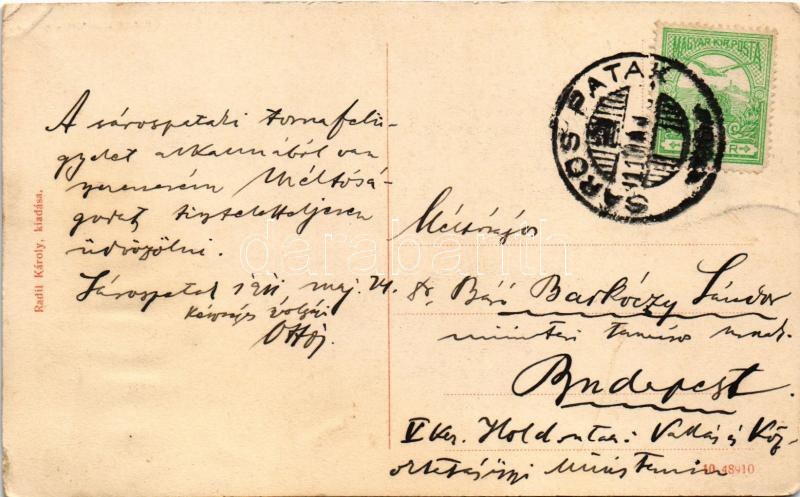 A sárospataki tornafelü-
gyelet alkalmából van
szerencsém Méltósá-
godat tiszteletteljesen
üdvözölni.
Sárospatak 1911 maj. 21.
Ottó
Radil Károly, kiadása.
MAGYAR KIR. POSTA
SÁROSPATAK
darabanth
Méltóságos
Dr. Báró Barkóczy Sándor
min
Budapest.
V ker. Hold utca: Vallás és Köz-
oktatásügyi Ministerium
10-48910